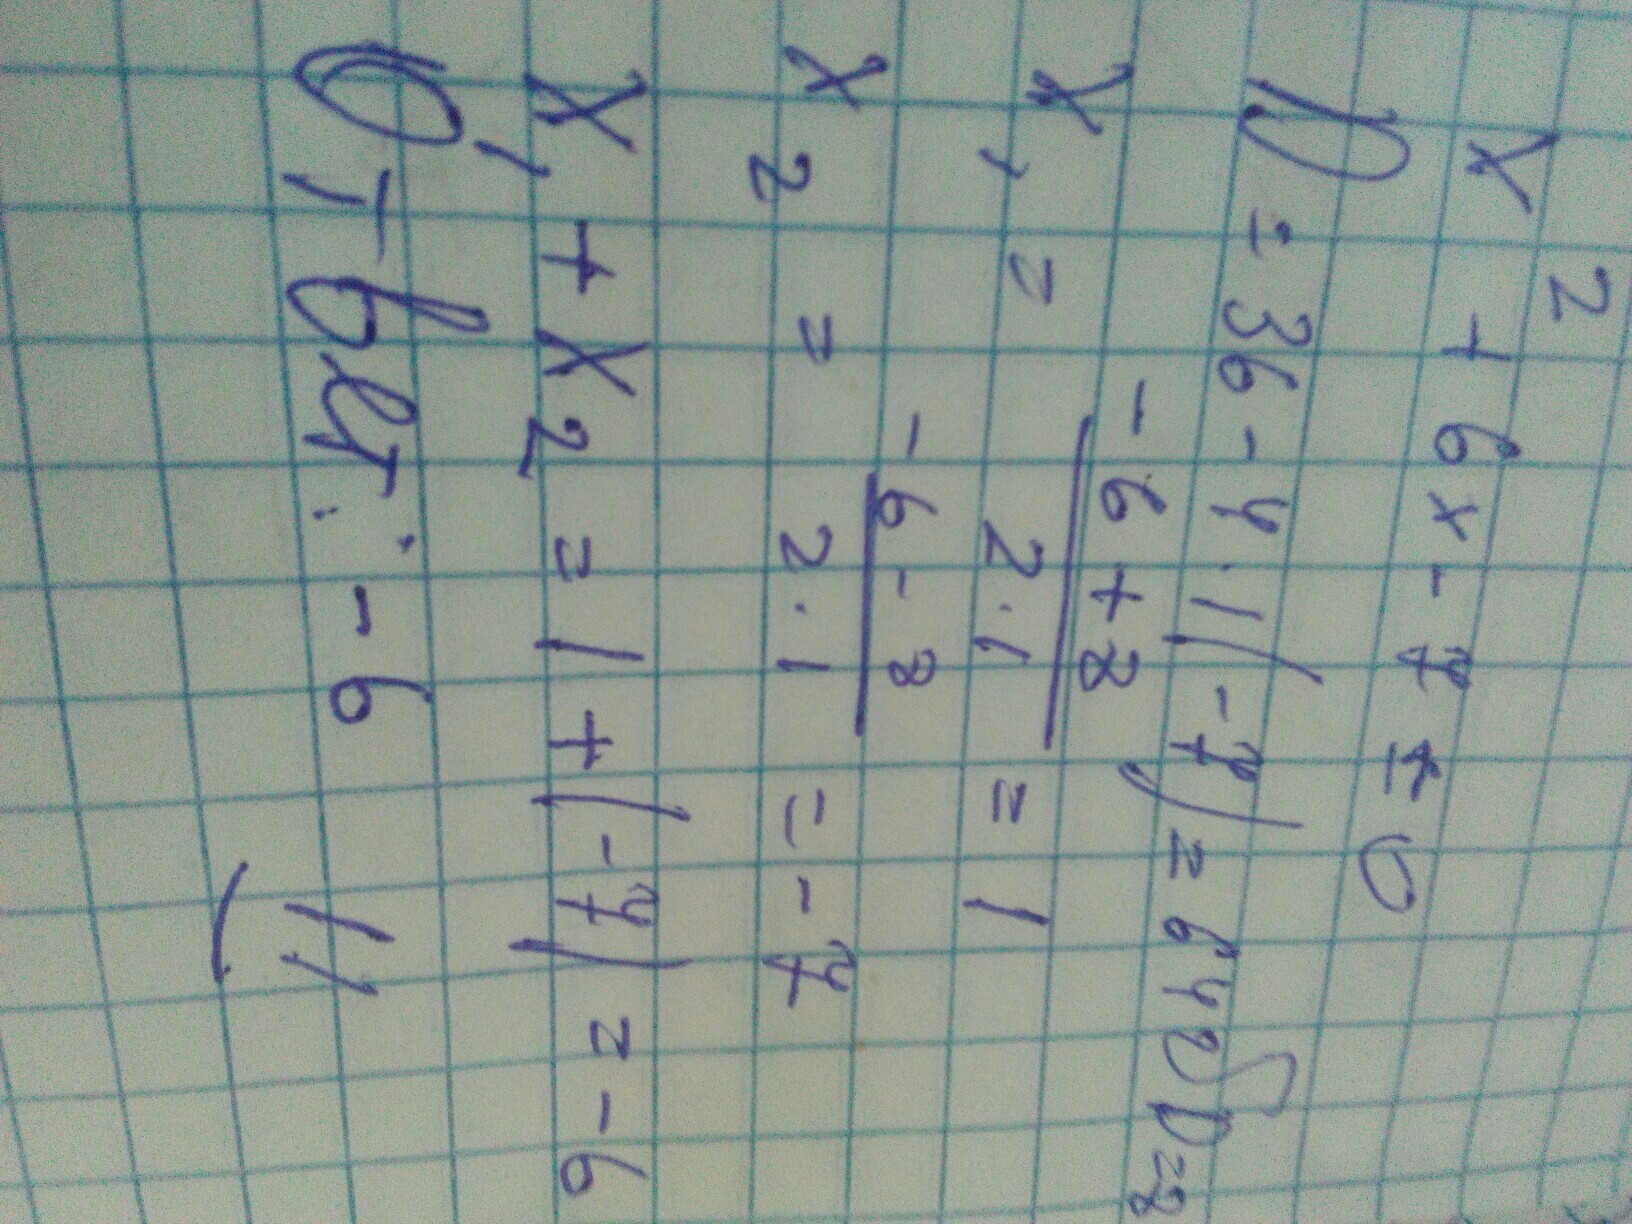 x² + 6x - 7 = 0
D = 36 - 4 · 1(-7) = 64 √D = 8
x₁ = (-6 + 8) / (2 · 1) = 1
x₂ = (-6 - 8) / (2 · 1) = -7
x₁ + x₂ = 1 + (-7) = -6
Ответ: -6